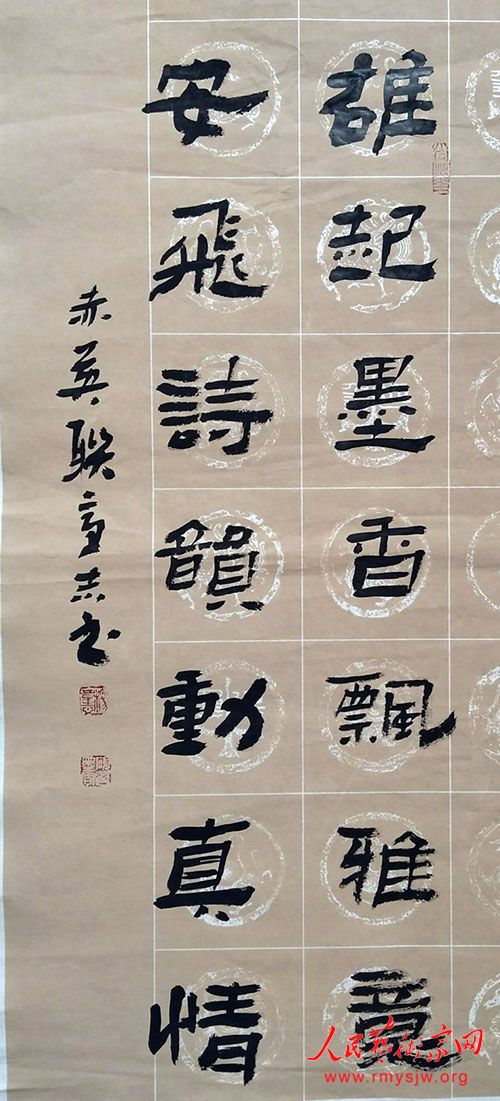 雄起墨香飄雅意
安飛詩韻動真情
赤英联童志书
人民藝術家网
www.rmysjw.org